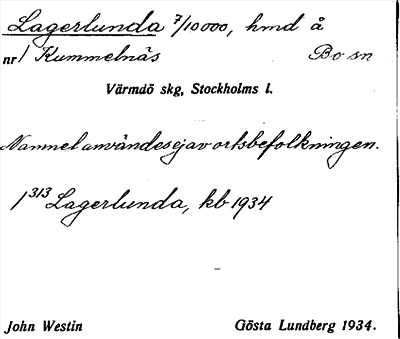 Lagerlunda 7/10000, hmd å
nr 1 Kummelnäs Bo sn
Värmdö skg, Stockholms l.
Namnet användes ej av ortsbefolkningen.
1 313 Lagerlunda, kb 1934
John Westin Gösta Lundberg 1934.